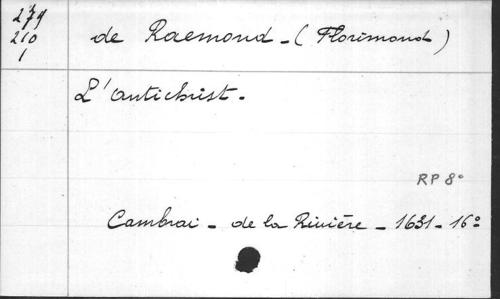 279
210
1
de Raemond - (Florimond)
L'antichrist.
RP 8°
Cambrai - de la Rivière - 1631 - 16°